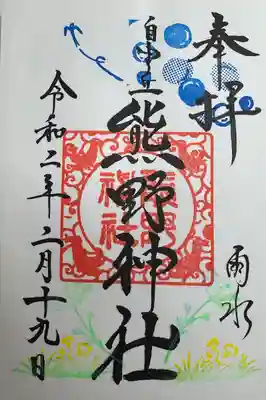 奉拝
雨水
自由丘
熊野神社
令和二年二月十九日